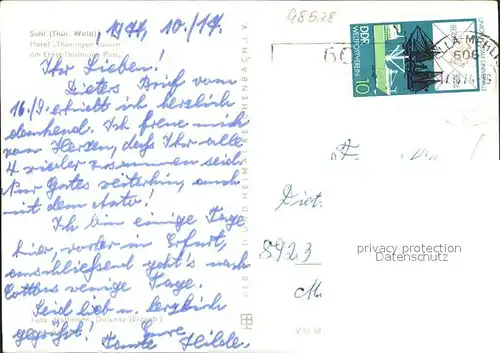 Suhl (Thür. Wald)
Hotel „Thüringen Tourist“
am Ernst-Thälmann-Platz
10./17.
Ihr Lieben!
Dieters Brief vom
16./9. erhielt ich herzlich
dankend. Ich freue mich
vom Herzen, daß Ihr alle
4 wieder zusammen seid.
Nur Gottes weiterhin, auch
mit dem Auto!
Ich bin einige Tage
hier, vorher in Erfurt,
anschließend geht's nach
Cottbus wenige Tage.
Seid lieb u. herzlich
gegrüßt! Eure
Tante Hilde.
BILD UND HEIMAT REICHENBACH I. V.
V 11 50
98528
DDR
WELTPOSTVEREIN
10
60
LA-MEHLIS
606
Diet
8923
M
privacy protection
Datenschutz